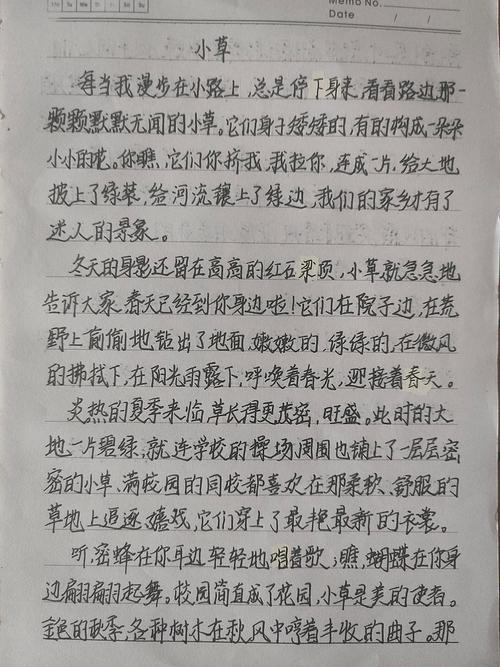 Memo No.
Date / /
小草
每当我漫步在小路上,总是停下身来,看看路边那一
颗颗默默无闻的小草。它们身子矮矮的,有的构成一朵朵
小小的花。你瞧,它们你挤我,我拉你,连成一片,给大地
披上了绿装,给河流镶上了绿边,我们的家乡才有了
迷人的景象。
冬天的身影还留在高高的红石梁顶,小草就急急地
告诉大家,春天已经到你身边啦!它们在院子边,在荒
野上偷偷地钻出了地面,嫩嫩的,绿绿的,在微风
的拂拭下,在阳光雨露下,呼唤着春光,迎接着春天。
炎热的夏季来临,草长得更茂密,旺盛。此时的大
地一片碧绿,就连学校的操场周围也铺上了一层层密
密的小草、满校园的同校都喜欢在那柔软、舒服的
草地上追逐嬉戏,它们穿上了最艳最新的衣裳。
听,蜜蜂在你耳边轻轻地唱着歌;瞧,蝴蝶在你身
边翩翩起舞。校园简直成了花园,小草是美的使者。
金色的秋季,各种树木在秋风中哼着丰收的曲子。那